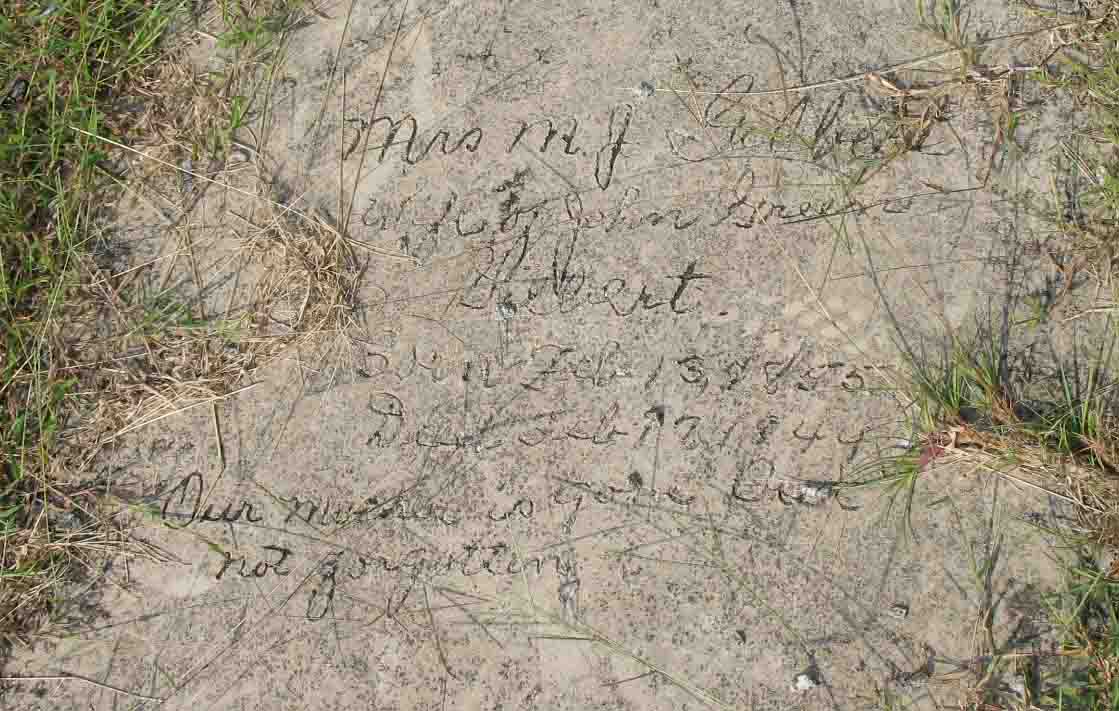 Mrs M. J Gilbert
Wife of John Greene
Gilbert.
Born Feb 13, 1853
Died Feb 12, 1944
Our mother is gone but
not forgotten